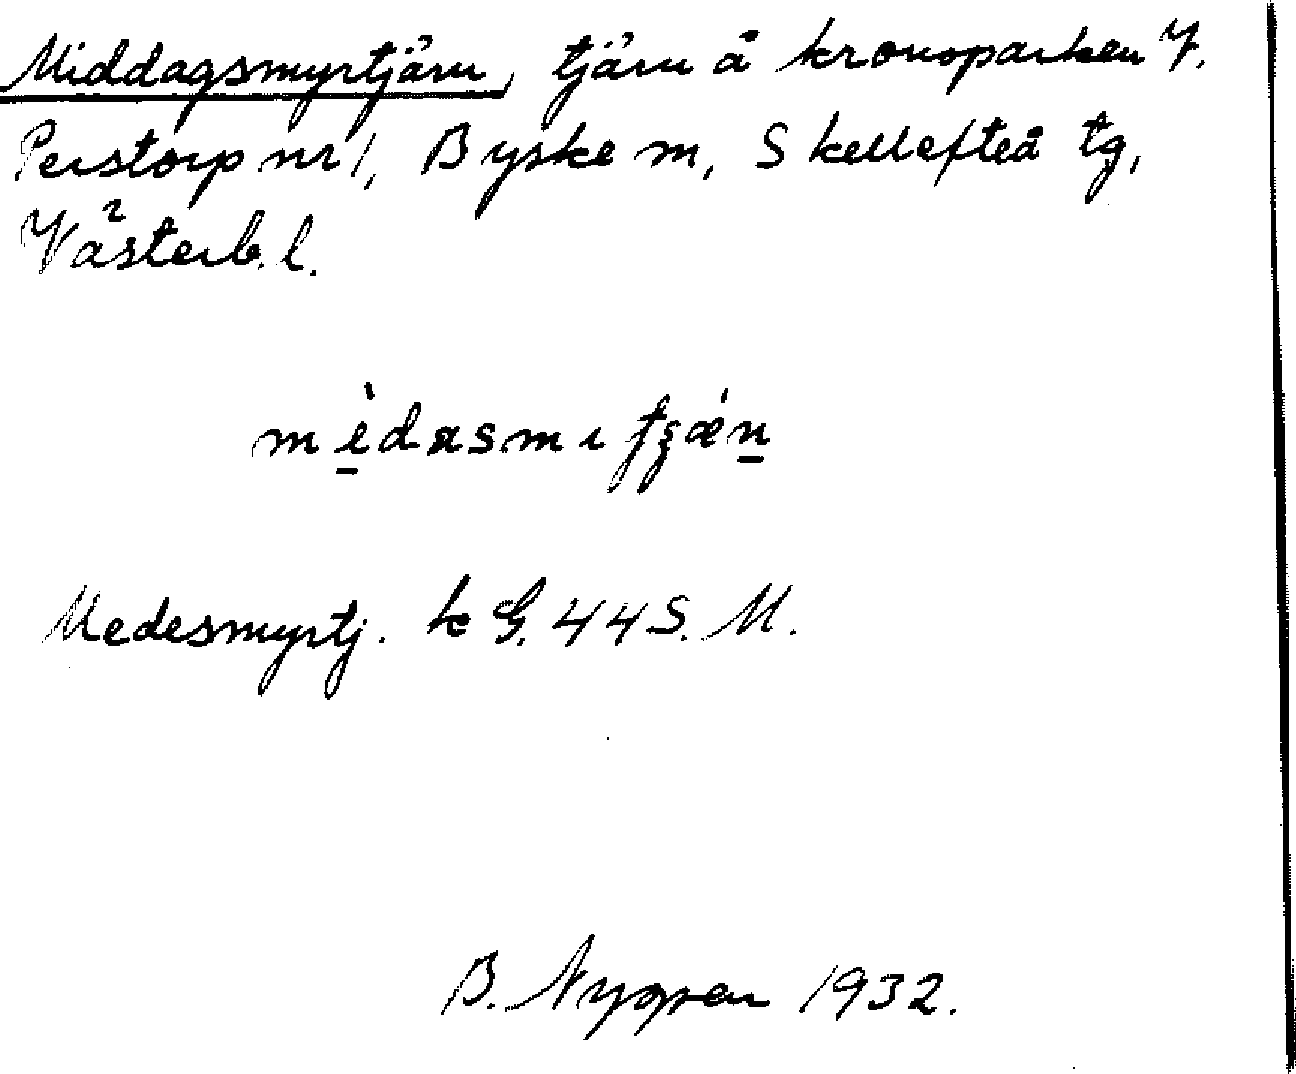 Middagsmyrtjärn, tjärn å kronoparken Y.
Perstorp nr 1, Byske sn, Skellefteå tg,
Västerb. l.
Medesmyrtj. k G. 44 S. M.
B. Nygren 1932.